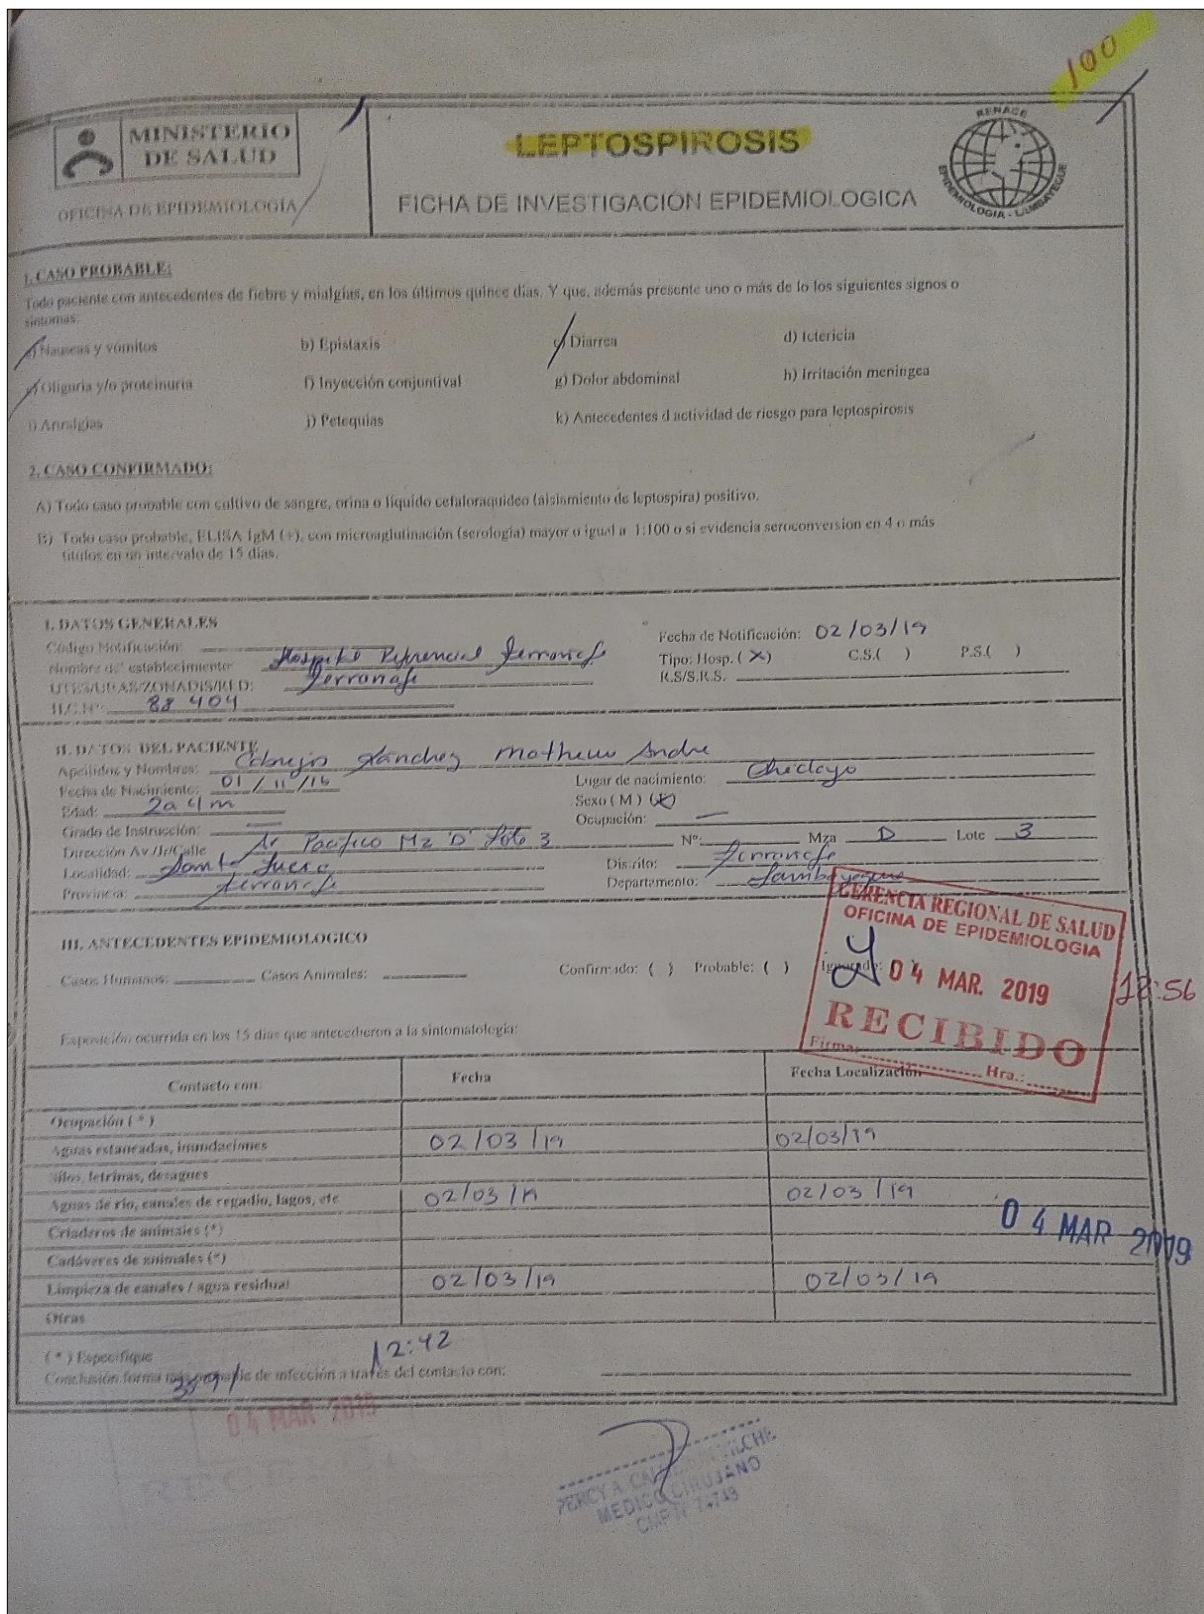 100
MINISTERIO
DE SALUD
OFICINA DE EPIDEMIOLOGÍA
LEPTOSPIROSIS
FICHA DE INVESTIGACIÓN EPIDEMIOLOGICA
RENACE
EPIDEMIOLOGIA - LAMBAYEQUE
1. CASO PROBABLE:
Todo paciente con antecedentes de fiebre y mialgias, en los últimos quince días. Y que, además presente uno o más de lo los siguientes signos o
síntomas:
a) Nauseas y vómitos b) Epistaxis c) Diarrea d) Ictericia
e) Oliguria y/o proteinuria f) Inyección conjuntival g) Dolor abdominal h) Irritación meníngea
i) Artralgias j) Petequias k) Antecedentes d actividad de riesgo para leptospirosis
2. CASO CONFIRMADO:
A) Todo caso probable con cultivo de sangre, orina o líquido cefaloraquideo (aislamiento de leptospira) positivo.
B) Todo caso probable, ELISA IgM (+), con microaglutinación (serología) mayor o igual a 1:100 o si evidencia seroconversion en 4 o más
títulos en un intervalo de 15 días.
I. DATOS GENERALES
Código Notificación: Fecha de Notificación: 02/03/19
Nombre del establecimiento: Hospital Referencial Ferreñafe Tipo: Hosp. (X) C.S.( ) P.S.( )
UTES/UBAS/ZONADIS/RED: Ferreñafe R.S/S.R.S.
H.C.Nº: 88 404
II. DATOS DEL PACIENTE
Apellidos y Nombres: Sánchez Matheus Andre
Fecha de Nacimiento: 01/11/16 Lugar de nacimiento: Chiclayo
Edad: 2a 4m Sexo ( M ) (X)
Grado de Instrucción: — Ocupación: —
Dirección Av/Jr/Calle Pacifico Mz "D" Lote 3 Nº: Mza D Lote 3
Localidad: Santa Lucia Distrito: Ferreñafe
Provincia: Ferreñafe Departamento: Lambayeque
GERENCIA REGIONAL DE SALUD
OFICINA DE EPIDEMIOLOGIA
04 MAR. 2019
RECIBIDO
Firma: Hra.:
12:56
III. ANTECEDENTES EPIDEMIOLOGICO
Casos Humanos: Casos Animales: Confirmado: ( ) Probable: ( ) Ignorado:
Exposición ocurrida en los 15 días que antecedieron a la sintomatología:
Contacto con: Fecha Fecha Localización
Ocupación (*)
Aguas estancadas, inundaciones 02/03/19 02/03/19
Silos, letrinas, desagues
Aguas de río, canales de regadío, lagos, etc 02/03/19 02/03/19
Criaderos de animales (*)
04 MAR 2019
Cadáveres de animales (*)
Limpieza de canales / agua residual 02/03/19 02/03/19
Otras
(*) Especifique
12:42
Conclusión forma más probable de infección a través del contacto con:
04 MAR 2019
PERCY A.
MEDICO CIRUJANO
CMP Nº